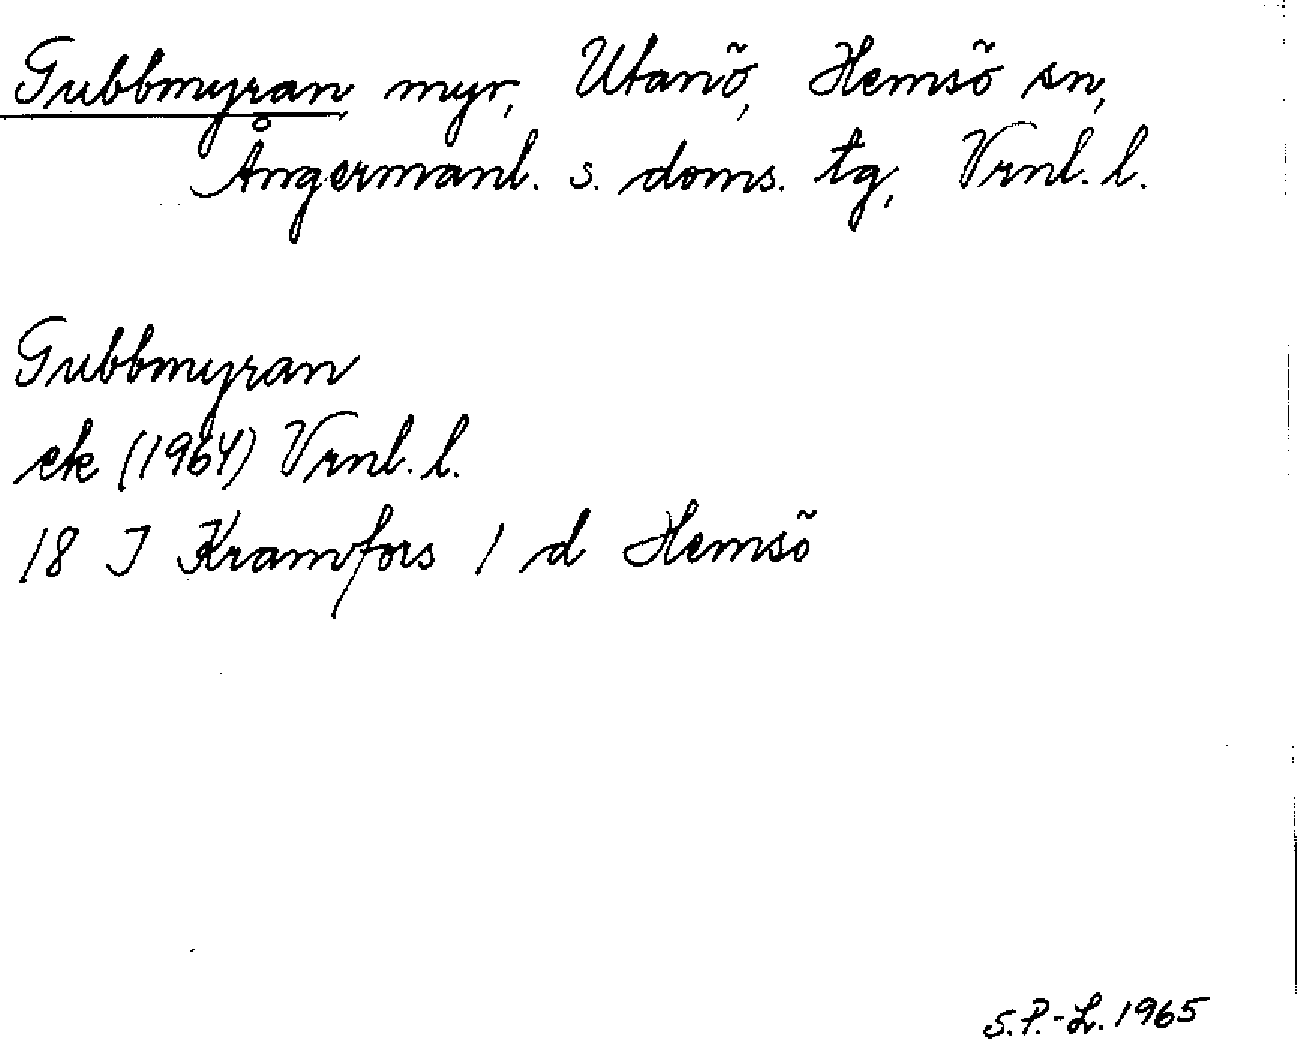 Gubbmyran, myr, Utanö, Hemsö sn,
Ångermanl. s. doms. tg, Vrnl. l.
Gubbmyran
ek (1964) Vrnl. l.
18 I Kramfors 1 d Hemsö
S.P.-L. 1965